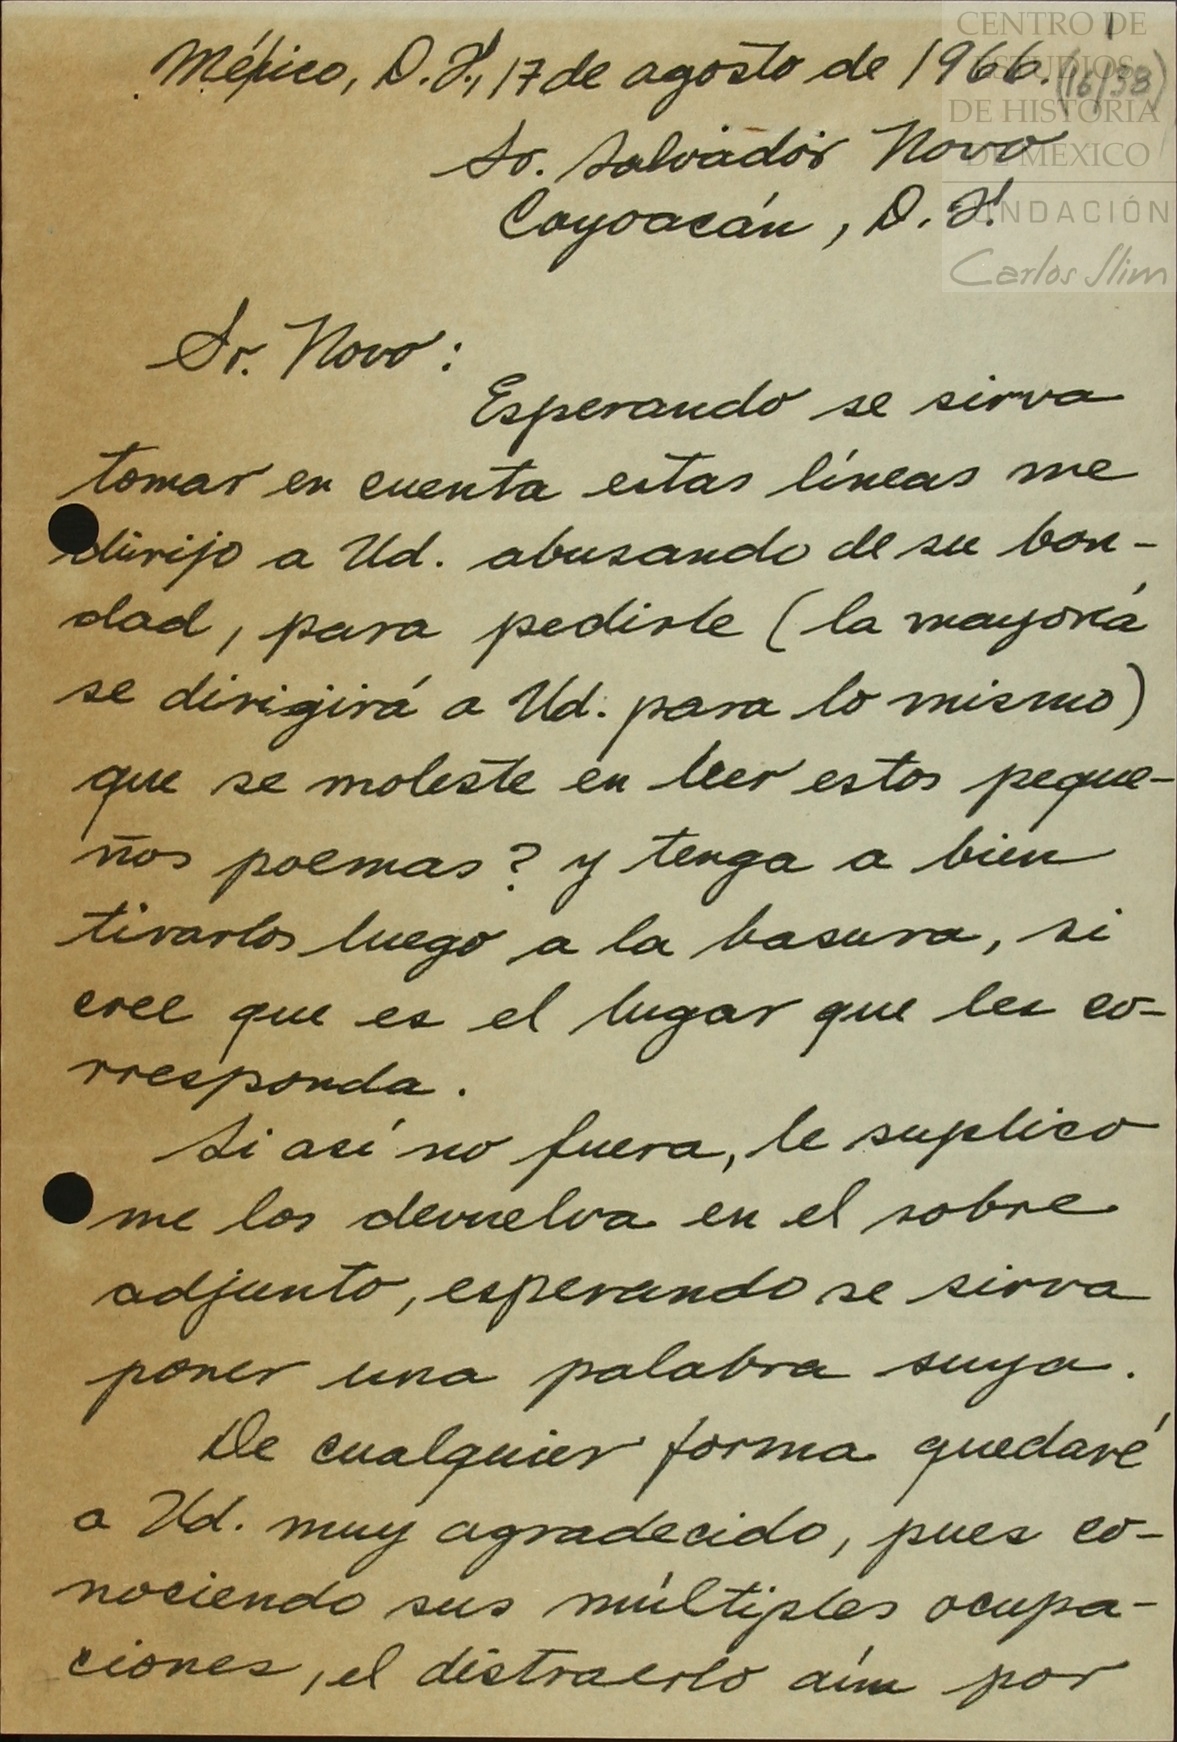 CENTRO DE
ESTUDIOS
DE HISTORIA
DE MÉXICO
FUNDACIÓN
Carlos Slim
México, D.F., 17 de agosto de 1966.
Sr. Salvador Novo
Coyoacán, D.F.
Sr. Novo:
Esperando se sirva
tomar en cuenta estas líneas me
dirijo a Ud. abusando de su bon-
dad, para pedirle (la mayoría
se dirigirá a Ud. para lo mismo)
que se moleste en leer estos peque-
ños poemas? y tenga a bien
tirarlos luego a la basura, si
cree que es el lugar que les co-
rresponda.
Si así no fuera, le suplico
me los devuelva en el sobre
adjunto, esperando se sirva
poner una palabra suya.
De cualquier forma quedaré
a Ud. muy agradecido, pues co-
nociendo sus múltiples ocupa-
ciones, el distraerlo aún por